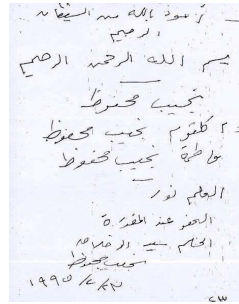 أعوذ بالله من الشيطان
الرجيم
بسم الله الرحمن الرحيم
نجيب محفوظ
أم كلثوم نجيب محفوظ
فاطمة نجيب محفوظ
العلم نور
العفو عند المقدرة
الحلم سيد الأخلاق
نجيب محفوظ
١٩٩٥/٢/٢٣
٢٣